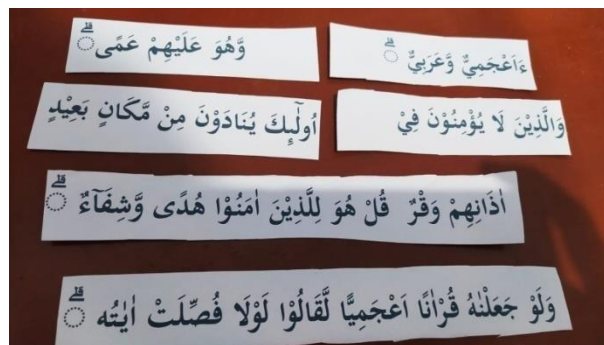 ءَاَعْجَمِيٌّ وَّعَرَبِيٌّ ۗ
وَّهُوَ عَلَيْهِمْ عَمًىۗ
وَالَّذِيْنَ لَا يُؤْمِنُوْنَ فِيْ
اُولٰۤىِٕكَ يُنَادَوْنَ مِنْ مَّكَانٍ بَعِيْدٍ
اٰذَانِهِمْ وَقْرٌ قُلْ هُوَ لِلَّذِيْنَ اٰمَنُوْا هُدًى وَّشِفَاۤءٌ ۗ
وَلَوْ جَعَلْنٰهُ قُرْاٰنًا اَعْجَمِيًّا لَّقَالُوْا لَوْلَا فُصِّلَتْ اٰيٰتُه ۗ